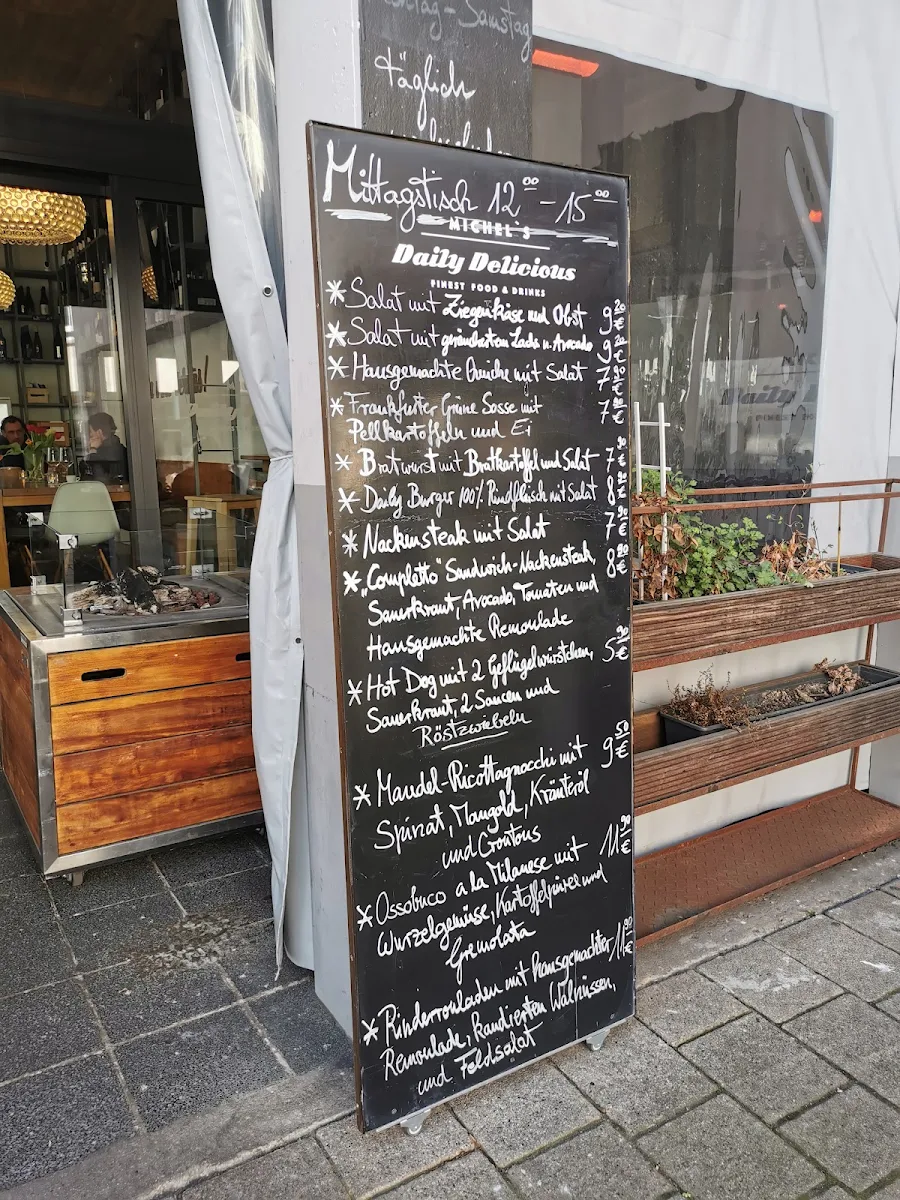 täglich
Mittagstisch 12⁰⁰ - 15⁰⁰
MICHEL'S
Daily Delicious
FINEST FOOD & DRINKS
* Salat mit Ziegenkäse und Obst 9²⁰ €
* Salat mit geräuchertem Lachs u. Avocado 9²⁰ €
* Hausgemachte Quiche mit Salat 7⁹⁰ €
* Frankfurter Grüne Sosse mit 7⁹⁰ €
Pellkartoffeln und Ei
* Bratwurst mit Bratkartoffel und Salat 7⁹⁰ €
* Daily Burger 100% Rindfleisch mit Salat 8⁹⁰ €
* Nackensteak mit Salat 7⁹⁰ €
* „Completto" Sandwich-Nackensteak, 8²⁰ €
Sauerkraut, Avocado, Tomaten und
Hausgemachte Remoulade
* Hot Dog mit 2 Geflügelwürstchen, 5⁹⁰ €
Sauerkraut, 2 Saucen und
Röstzwiebeln
* Mandel-Ricottagnocchi mit 9⁵⁰ €
Spinat, Mangold, Kräuteröl
und Croutons
* Ossobuco a la Milanese mit 11⁹⁰ €
Wurzelgemüse, Kartoffelpüree und
Gremolata
* Rinderrouladen mit Hausgemachter 11⁹⁰ €
Remoulade, kandierten Walnüssen,
und Feldsalat